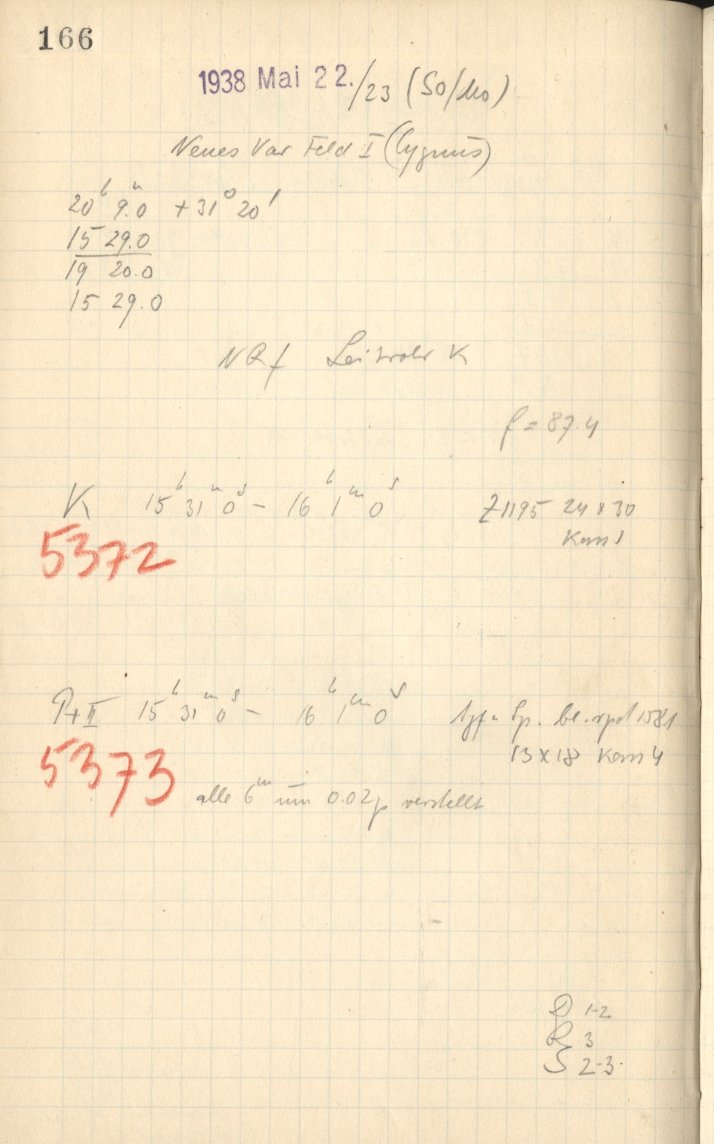 166
1938 Mai 22./23 (So/Mo)
Neues Var Feld I (Cygnus)
20ʰ 9ᵐ.0 +31° 20'
15 29.0
19 20.0
15 29.0
Leitrohr K
f = 87.4
K 15ʰ 31ᵐ 0ˢ – 16ʰ 1ᵐ 0ˢ Z1195 24 x 30
Kass 1
5372
15ʰ 31ᵐ 0ˢ – 16ʰ 1ᵐ 0ˢ Agfa Sp. bl. 1581
13 x 18 Kass 4
5373
alle 6ᵐ um 0.02 verstellt
D 1-2
R 3
S 2-3.